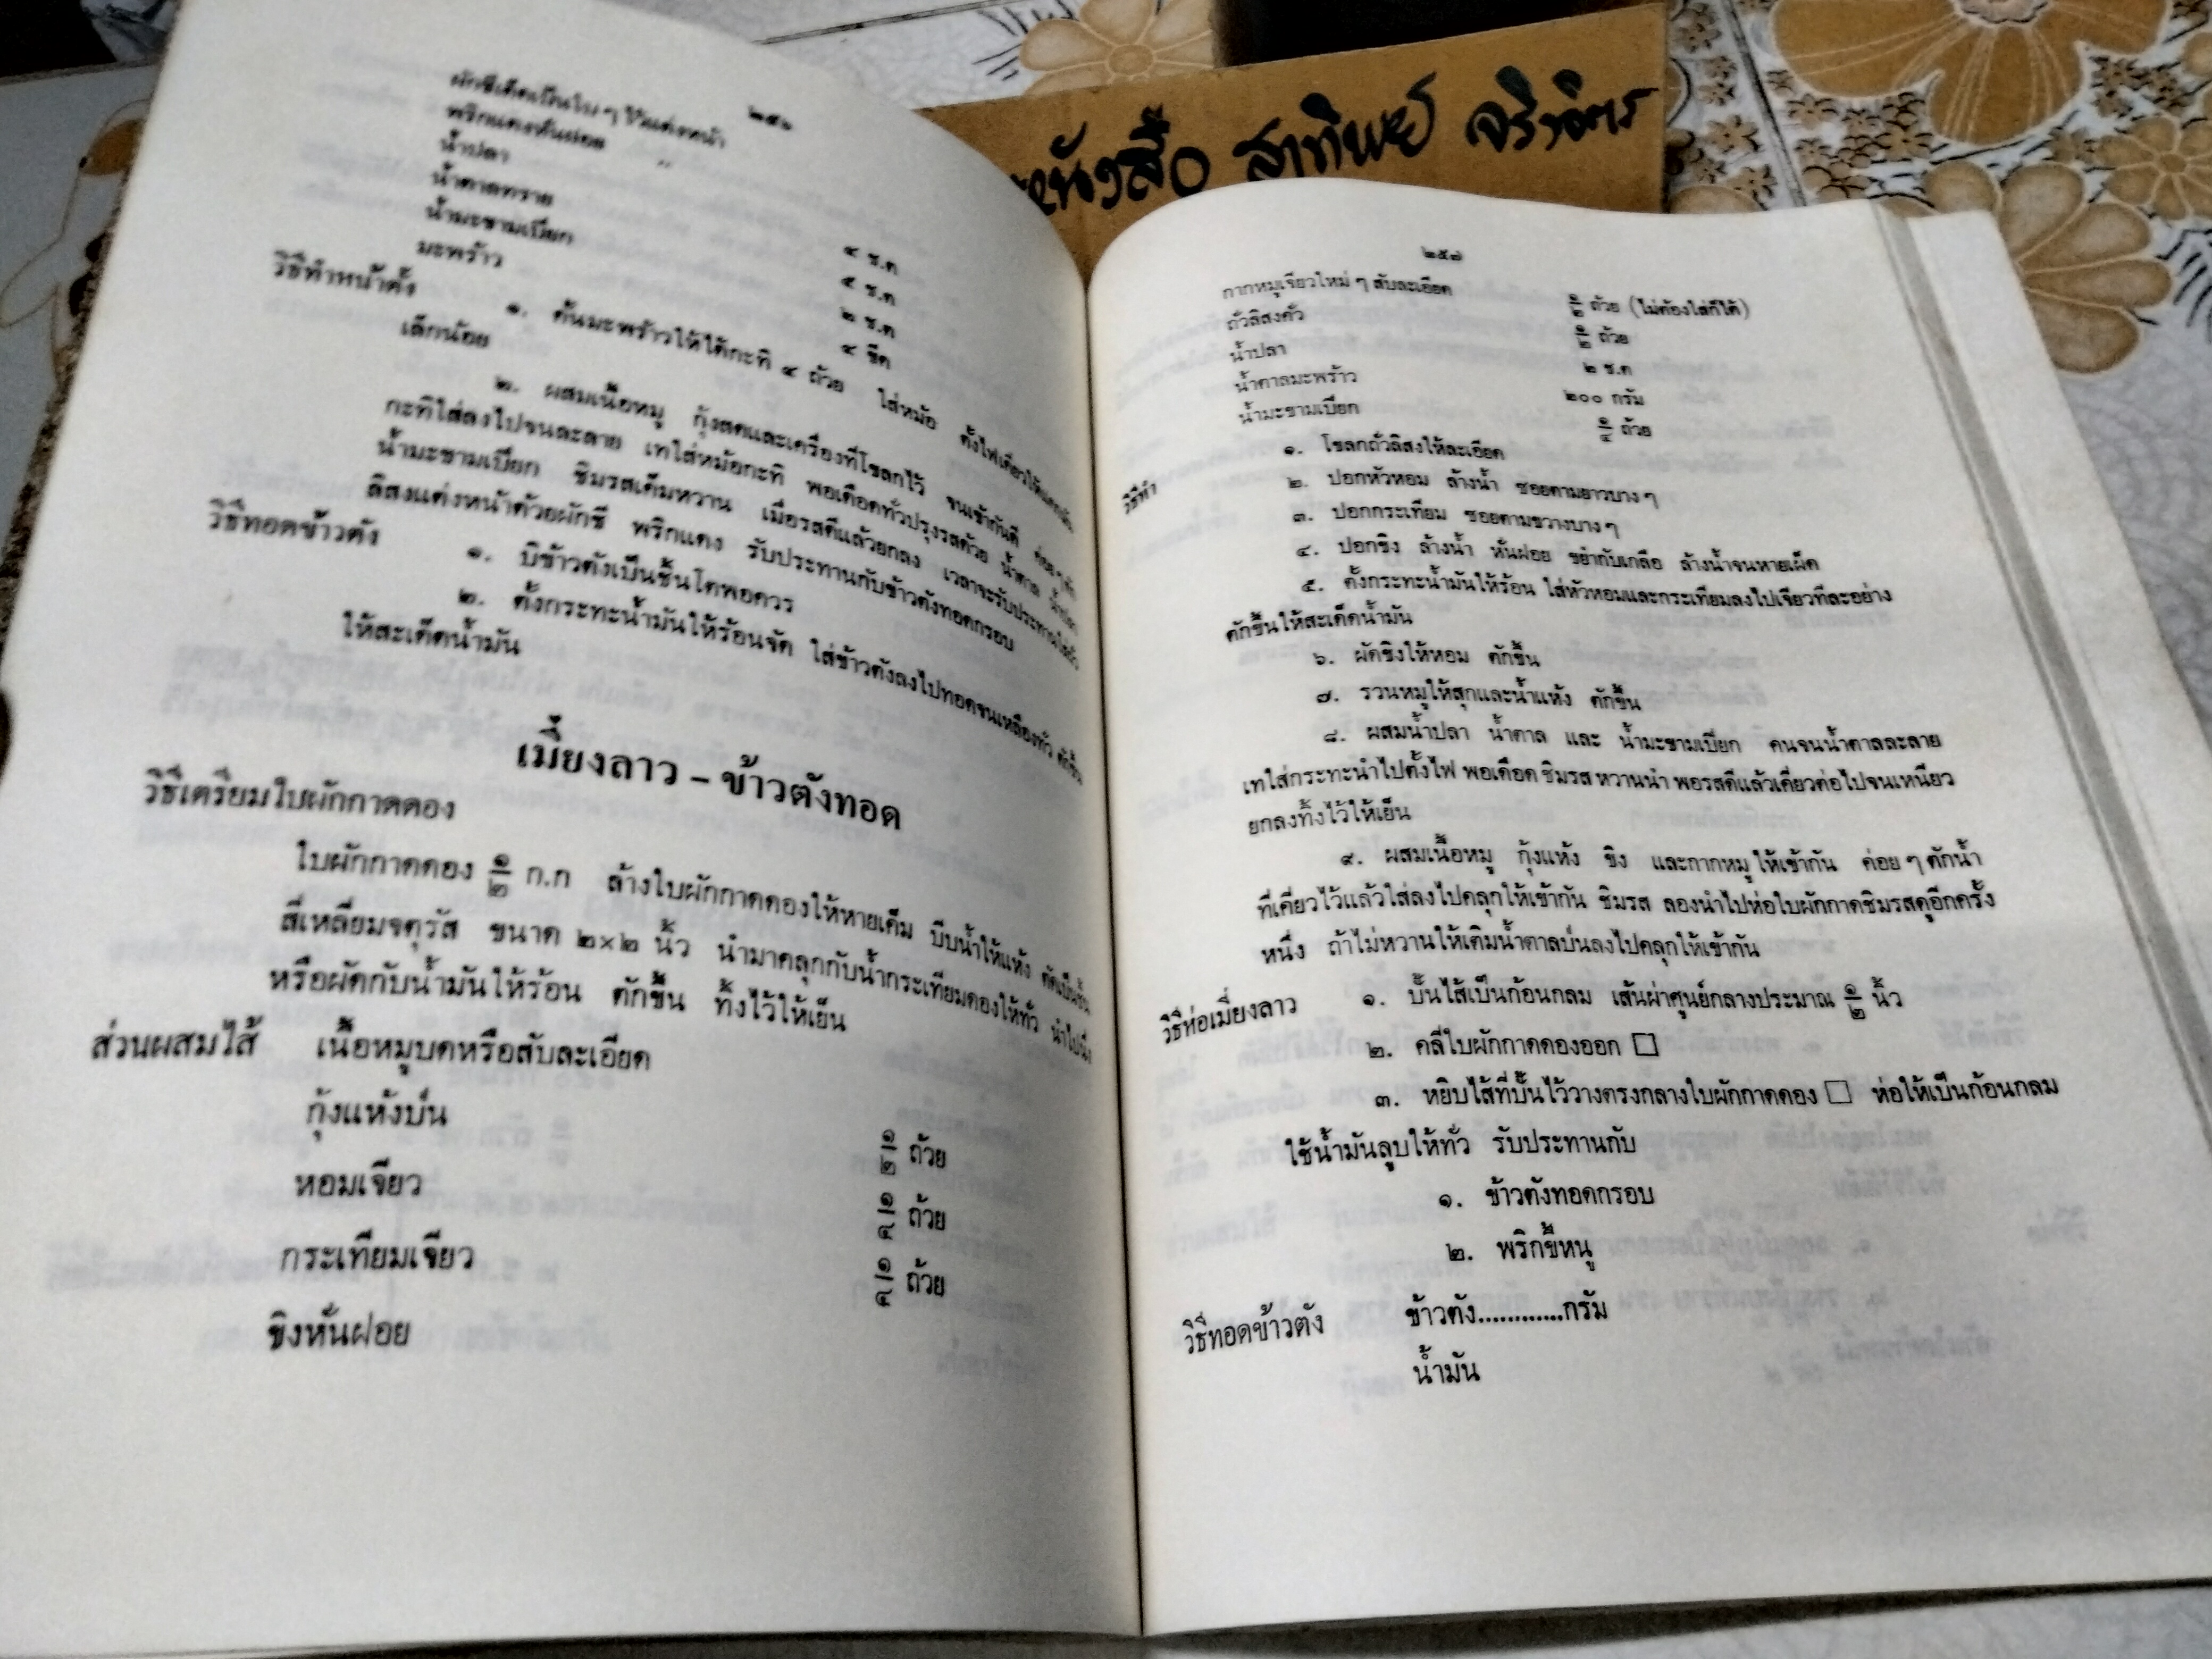 ๒๕๖
ผักชีเด็ดเป็นใบๆ ไว้แต่งหน้า
พริกแดงหั่นฝอย "
น้ำปลา ๔ ช.ต
น้ำตาลทราย ๕ ช.ต
น้ำมะขามเปียก ๒ ช.ต
มะพร้าว ๔ ขีด
วิธีทำหน้าตั้ง
๑. คั้นมะพร้าวให้ได้กะทิ ๔ ถ้วย ใส่หม้อ ตั้งไฟเคี่ยวให้แตกมัน
เล็กน้อย
๒. ผสมเนื้อหมู กุ้งสดและเครื่องที่โขลกไว้ จนเข้ากันดี ค่อยๆ
กะทิใส่ลงไปจนละลาย เทใส่หม้อกะทิ พอเดือดทั่วปรุงรสด้วย น้ำตาล น้ำปลา
น้ำมะขามเปียก ชิมรสเค็มหวาน เมื่อรสดีแล้วยกลง เวลาจะรับประทานใส่ถั่ว
ลิสงแต่งหน้าด้วยผักชี พริกแดง รับประทานกับข้าวตังทอดกรอบ
วิธีทอดข้าวตัง
๑. บิข้าวตังเป็นชิ้นโตพอควร
๒. ตั้งกระทะน้ำมันให้ร้อนจัด ใส่ข้าวตังลงไปทอดจนเหลืองทั่ว ตักขึ้น
ให้สะเด็ดน้ำมัน
เมี่ยงลาว – ข้าวตังทอด
วิธีเตรียมใบผักกาดดอง
ใบผักกาดดอง ๑/๒ ก.ก ล้างใบผักกาดดองให้หายเค็ม บีบน้ำให้แห้ง ตัดเป็นชิ้น
สี่เหลี่ยมจตุรัส ขนาด ๒×๒ นิ้ว นำมาคลุกกับน้ำกระเทียมดองให้ทั่ว นำไปนึ่ง
หรือผัดกับน้ำมันให้ร้อน ตักขึ้น ทิ้งไว้ให้เย็น
ส่วนผสมไส้ เนื้อหมูบดหรือสับละเอียด
กุ้งแห้งป่น ๑/๒ ถ้วย
หอมเจียว ๑/๔ ถ้วย
กระเทียมเจียว ๑/๔ ถ้วย
ขิงหั่นฝอย
หนังสือ สาทิพย์ จริงจิตร
๒๕๗
กากหมูเจียวใหม่ๆ สับละเอียด ๑/๒ ถ้วย (ไม่ต้องใส่ก็ได้)
ถั่วลิสงคั่ว ๑/๒ ถ้วย
น้ำปลา ๒ ช.ต
น้ำตาลมะพร้าว ๒๐๐ กรัม
น้ำมะขามเปียก ๑/๔ ถ้วย
วิธีทำ ๑. โขลกถั่วลิสงให้ละเอียด
๒. ปอกหัวหอม ล้างน้ำ ซอยตามยาวบางๆ
๓. ปอกกระเทียม ซอยตามขวางบางๆ
๔. ปอกขิง ล้างน้ำ หั่นฝอย ขยำกับเกลือ ล้างน้ำจนหายเผ็ด
๕. ตั้งกระทะน้ำมันให้ร้อน ใส่หัวหอมและกระเทียมลงไปเจียวทีละอย่าง
ตักขึ้นให้สะเด็ดน้ำมัน
๖. ผัดขิงให้หอม ตักขึ้น
๗. รวนหมูให้สุกและน้ำแห้ง ตักขึ้น
๘. ผสมน้ำปลา น้ำตาล และ น้ำมะขามเปียก คนจนน้ำตาลละลาย
เทใส่กระทะนำไปตั้งไฟ พอเดือด ชิมรส หวานนำ พอรสดีแล้วเคี่ยวต่อไปจนเหนียว
ยกลงทิ้งไว้ให้เย็น
๙. ผสมเนื้อหมู กุ้งแห้ง ขิง และกากหมู ให้เข้ากัน ค่อยๆ ตักน้ำ
ที่เคี่ยวไว้แล้วใส่ลงไปคลุกให้เข้ากัน ชิมรส ลองนำไปห่อใบผักกาดชิมรสดูอีกครั้ง
หนึ่ง ถ้าไม่หวานให้เติมน้ำตาลป่นลงไปคลุกให้เข้ากัน
วิธีห่อเมี่ยงลาว ๑. ปั้นไส้เป็นก้อนกลม เส้นผ่าศูนย์กลางประมาณ ๑/๒ นิ้ว
๒. คลี่ใบผักกาดดองออก □
๓. หยิบไส้ที่ปั้นไว้วางตรงกลางใบผักกาดดอง □ ห่อให้เป็นก้อนกลม
ใช้น้ำมันลูบให้ทั่ว รับประทานกับ
๑. ข้าวตังทอดกรอบ
๒. พริกขี้หนู
วิธีทอดข้าวตัง ข้าวตัง............กรัม
น้ำมัน